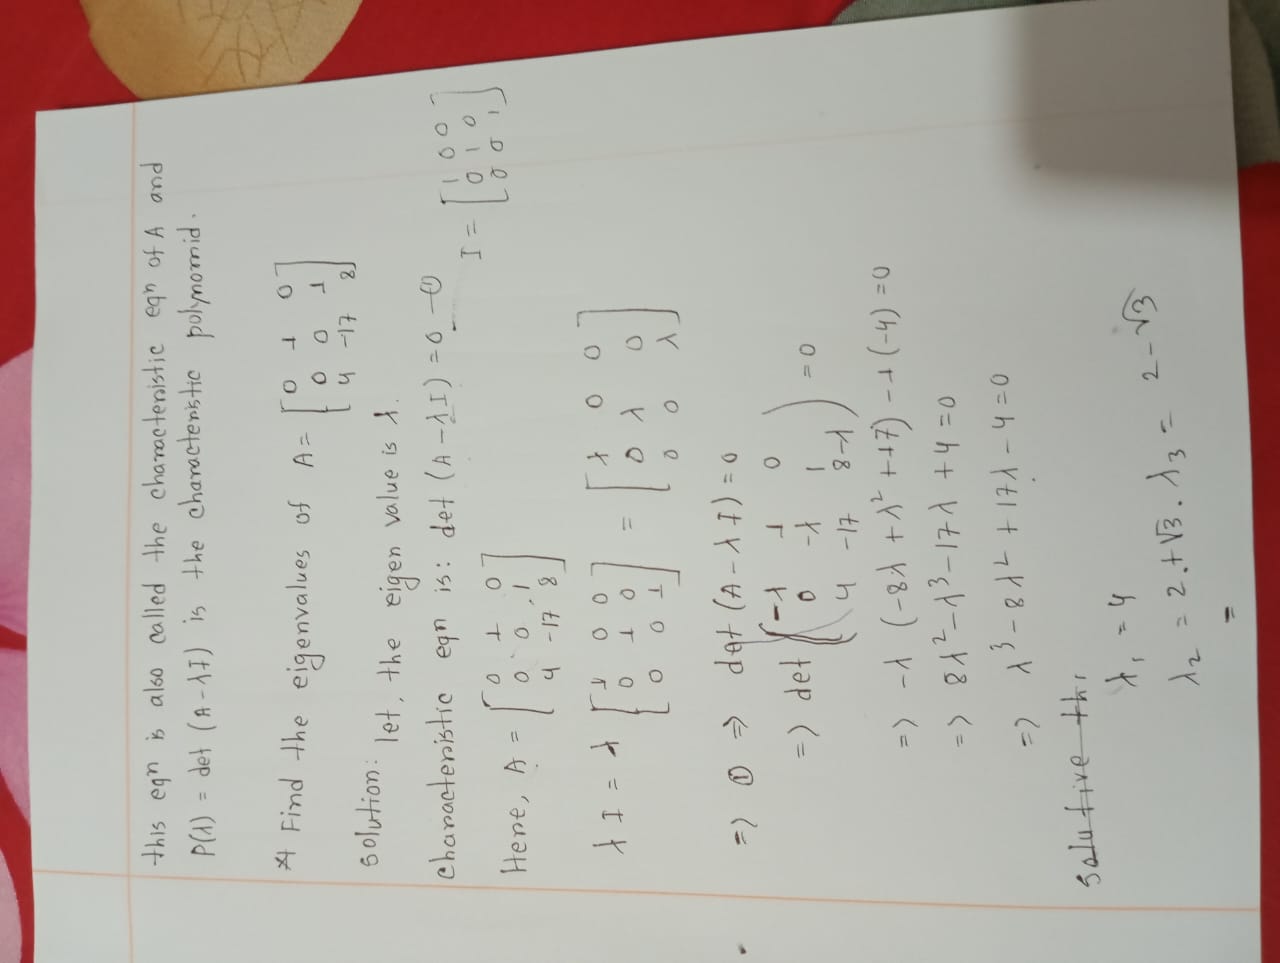 this eqn is also called the characteristic eqn of A and
P(λ) = det (A-λI) is the characteristic polynomid.
* Find the eigenvalues of A = [0 1 0
0 0 1
4 -17 8]
Solution: let, the eigen value is λ.
Characteristic eqn is: det (A-λI) = 0 — ①
Here, A = [0 1 0
0 0 1
4 -17 8]
I = [1 0 0
0 1 0
0 0 1]
λI = λ [1 0 0
0 1 0
0 0 1] = [λ 0 0
0 λ 0
0 0 λ]
=> ① => det (A-λI) = 0
=> det (-λ 1 0
0 -λ 1
4 -17 8-λ) = 0
=> -λ (-8λ + λ² + 17) - 1 (-4) = 0
=> 8λ² - λ³ - 17λ + 4 = 0
=> λ³ - 8λ² + 17λ - 4 = 0
λ₁ = 4
λ₂ = 2 + √3. λ₃ = 2 - √3